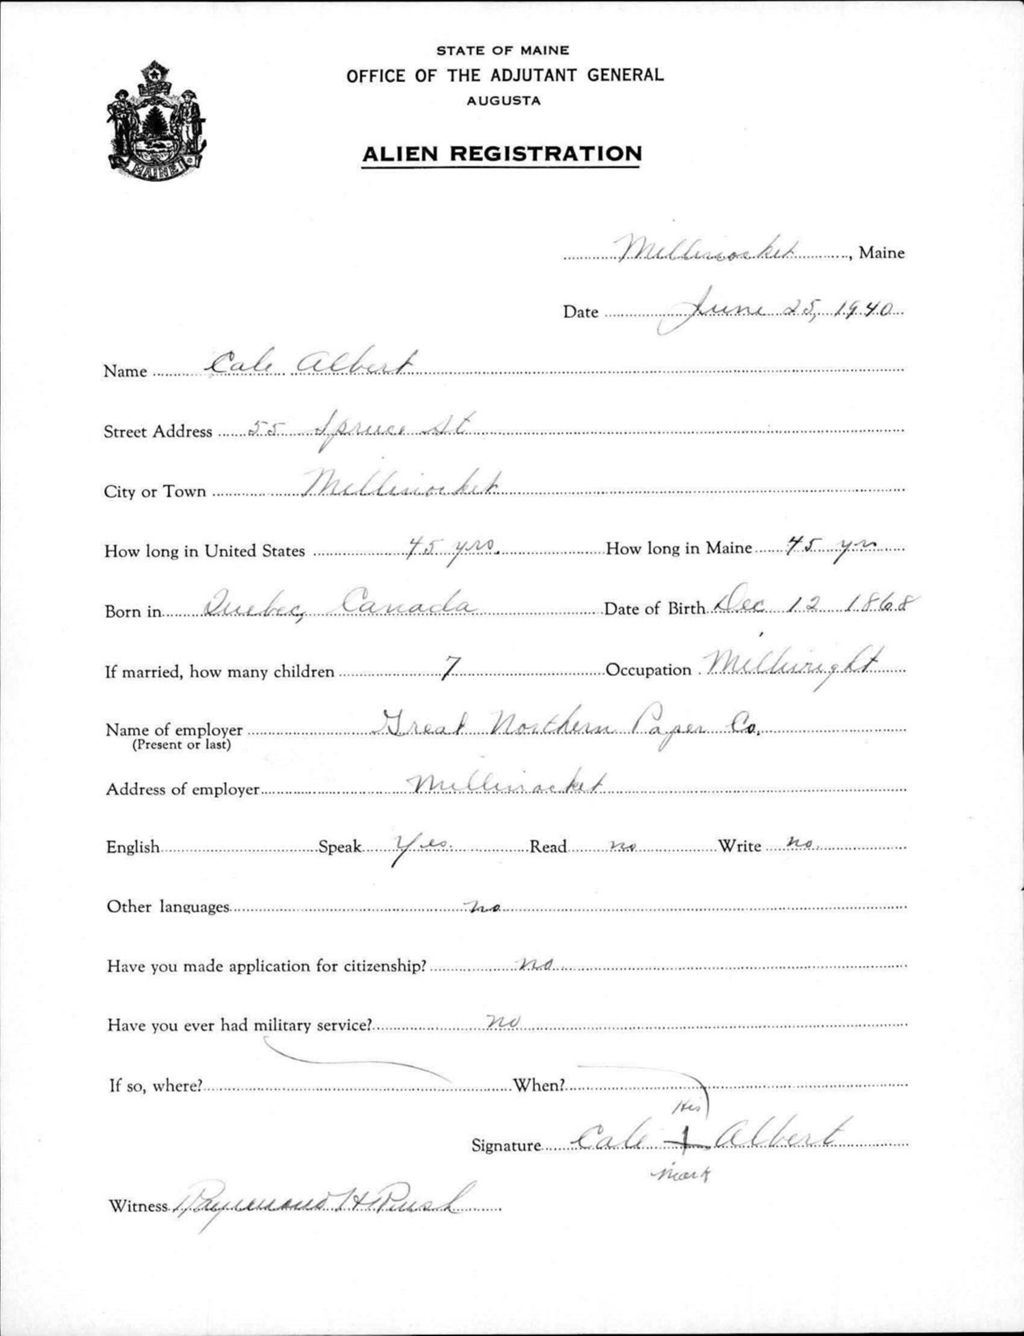 STATE OF MAINE
OFFICE OF THE ADJUTANT GENERAL
AUGUSTA
ALIEN REGISTRATION
MAINE
Millinocket, Maine
Date June 25, 1940
Name Cale Albert
Street Address 55 Spruce St
City or Town Millinocket
How long in United States 45 yrs. How long in Maine 45 yrs
Born in Quebec, Canada Date of Birth Dec 12 1868
If married, how many children 7 Occupation Millwright
Name of employer Great Northern Paper Co.
(Present or last)
Address of employer Millinocket
English Speak Yes. Read no Write no.
Other languages no
Have you made application for citizenship? no
Have you ever had military service? no
If so, where? When?
His
Signature Cale Albert
mark
Witness Raymond H Rush